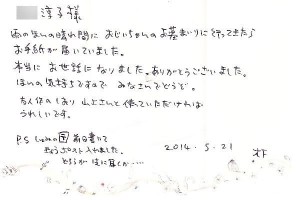 淳子様
雨のほんの晴れ間に おじいちゃんのお墓まいりに行ってきたら
お手紙が届いていました。
本当に お世話に なりました。ありがとうございました。
ほんの気持ちですので みなさんでどうぞ。
しおり 山上さんと使っていただければ
うれしいです。
P.S じゅみの 前日書いて
きょうポスト入れました。
どちらが 先に 耳くか・・・・
2014.5.21